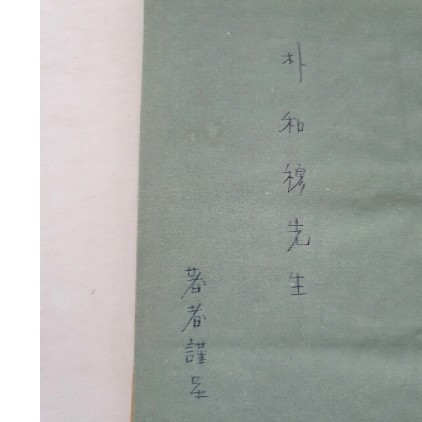 朴和穆先生
著者謹呈